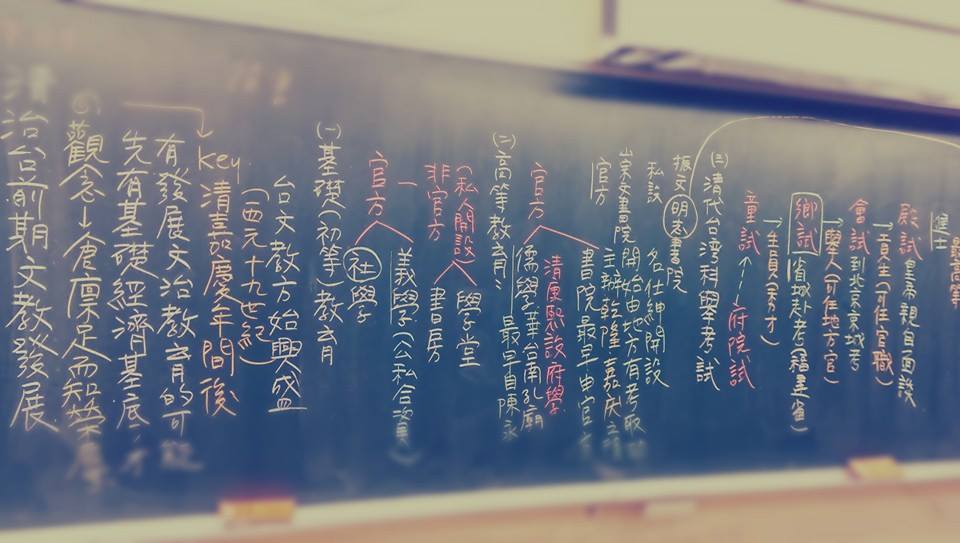 清治台前期文教發展
觀念→倉廩足而知榮辱
先有基礎經濟基底,才
有發展文治教育的可能
key 清嘉慶年間後
(西元十九世紀)
台文教方始興盛
(一)基礎(初等)教育
官方
社學
義學(公私合資)
非官方
(私人開設)
書房
學堂
(二)高等教育:
官方
儒學
最早自陳永華台南孔廟
清康熙設府學
書院最早由官方
主辦乾隆嘉慶方
官方
崇文書院
開始由地方有考取
私設
名仕紳開設
振文明志書院
(三)清代台灣科舉考試
童試←→府院試
→生員(秀才)
鄉試
省城赴考(福建省)
→舉人(可任地方官)
會試 到北京城考
→貢生(可任官職)
殿試 皇帝親自面談
進士
最高等